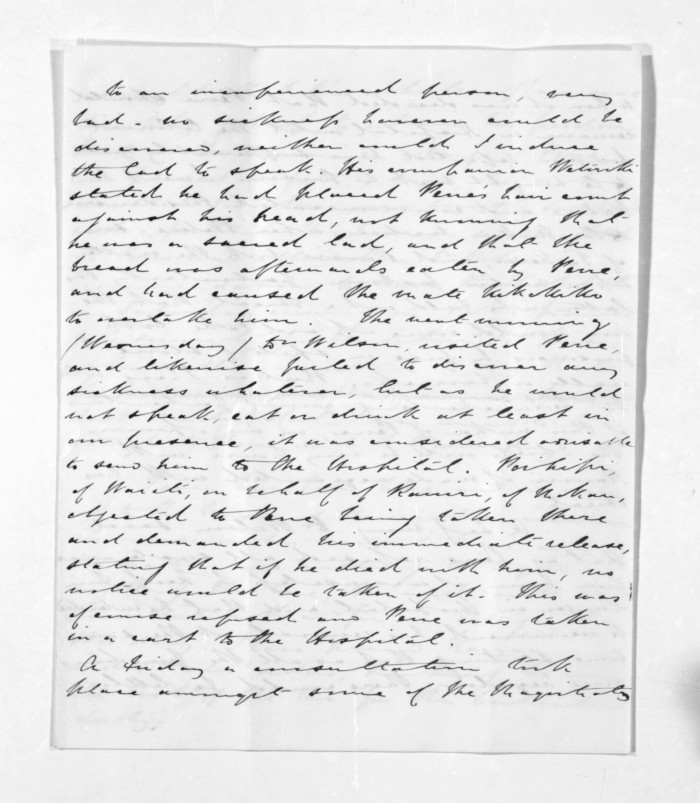 to an inexperienced person, very
bad - no sickness however could be
discovered, neither could I induce
the lad to speak. His companion
stated he had placed Pene's hair comb
against his head, not knowing that
he was a sacred lad, and that the
bread was afterwards eaten by Pene,
and had caused the mate kikokiko
to overtake him. The next morning
(Wednesday) Dr Wilson, visited Pene,
and likewise failed to discover any
sickness whatever, but as he would
not speak, eat or drink at least in
our presence, it was considered advisable
to send him to the Hospital. Poihipi,
of Waiti, on behalf of of
objected to Pene being taken there
and demanded his immediate release,
stating that if he died with him, no
notice would be taken of it. This was
of course refused and Pene was taken
in a cart to the Hospital.
A Friday a consultation took
place amongst some of the Magistrates